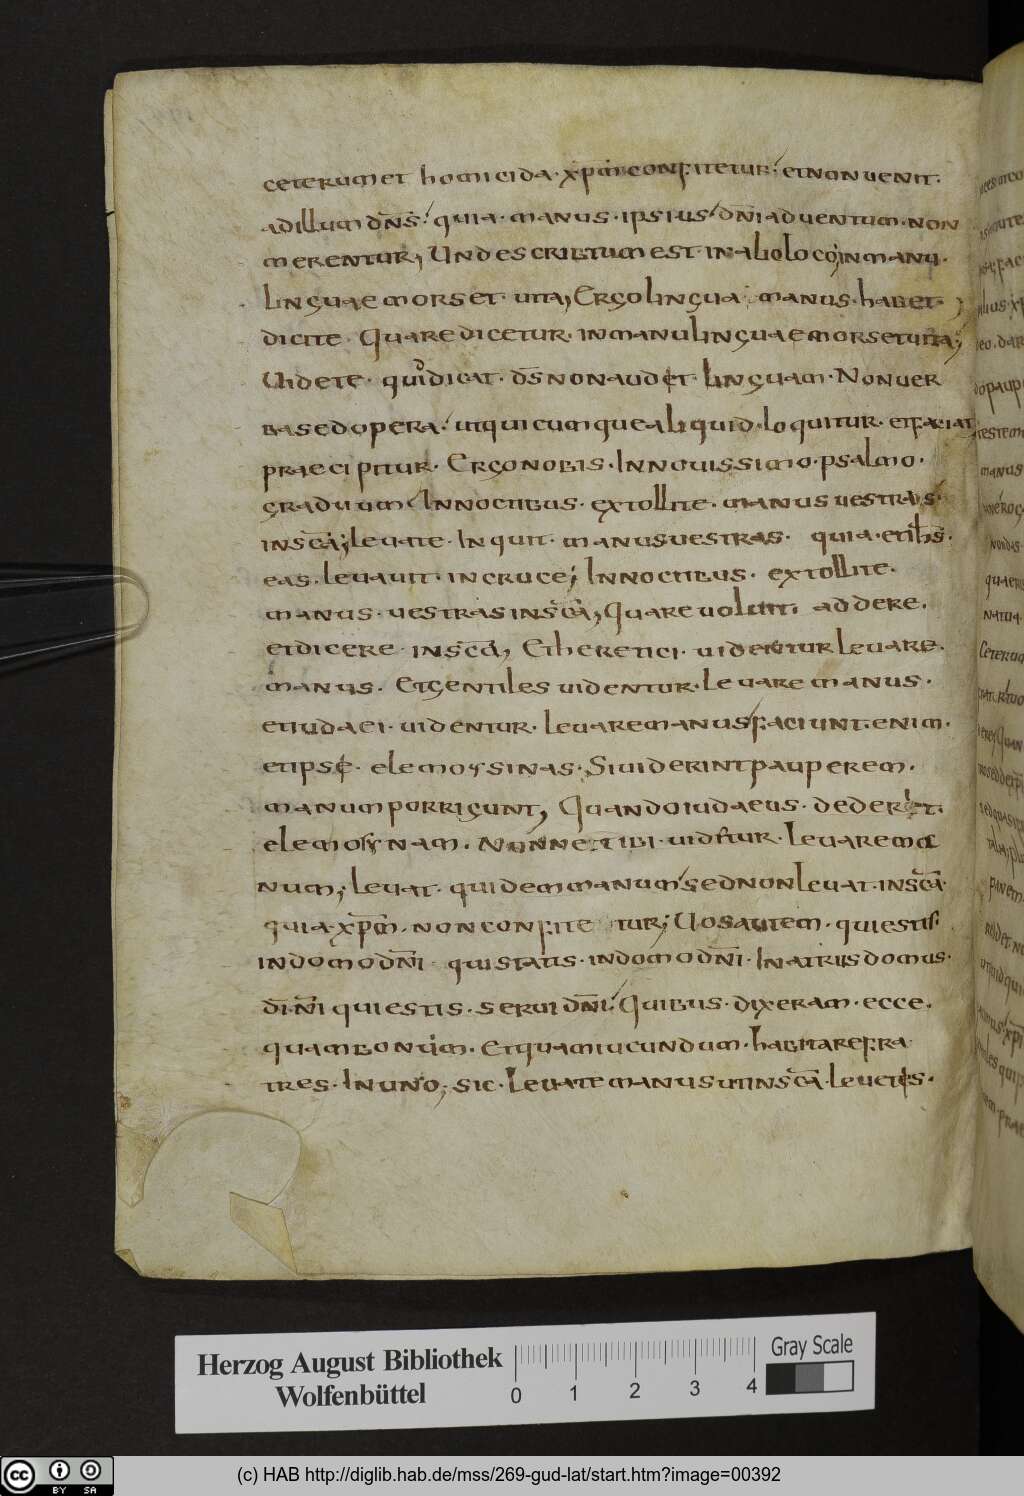 ceterum et homicida · xpm confitetur · et non uenit ·
ad illum dns · quia · manus · ipsius dni aduentum · non
merentur, Unde scribtum est in alio loco; in manu ·
linguae mors et uita, Ergo lingua manus · habet
dicite Quare dicetur · in manu linguae mors et uita;
Uidete · quid dicat · ds non audet linguam · Non uer
ba sed opera · ut quicumque aliquid · loquitur · et faciat
praecipitur · Ergo nobis · In nouissimo · psalmo ·
graduum In noctibus · extollite · manus uestras ·
in sca; leuate · Inquit · manus uestras · quia · et ihs ·
eas · leuauit · in cruce; In noctibus · extollite ·
manus · uestras in sca, Quare uoluit addere ·
et dicere · in sca, Et heretici · uidentur leuare ·
manus · Et gentiles uidentur · leuare manus ·
et iudaei · uidentur · leuare manus faciunt · enim ·
et ipse · elemosinas · Si uiderint pauperem ·
manum porrigunt, Quando iudaeus · dederit ·
elemosynam · Nonne tibi · uidetur · leuare ma
num; leuat · quidem manum sed non leuat · in sca ·
quia · xpm · non confite tur; Uos autem · qui estis
in domo dni qui statis · in domo dni · In atriis domus ·
di ni qui estis · serui dni · Quibus · dixeram · ecce ·
quam bonum · Et quam iucundum · habitare fra
tres · In uno; sic · Leuate manus ut in sca · leuetis ·
Herzog August Bibliothek
Wolfenbüttel
0 1 2 3 4
Gray Scale
cc BY SA
(c) HAB http://diglib.hab.de/mss/269-gud-lat/start.htm?image=00392